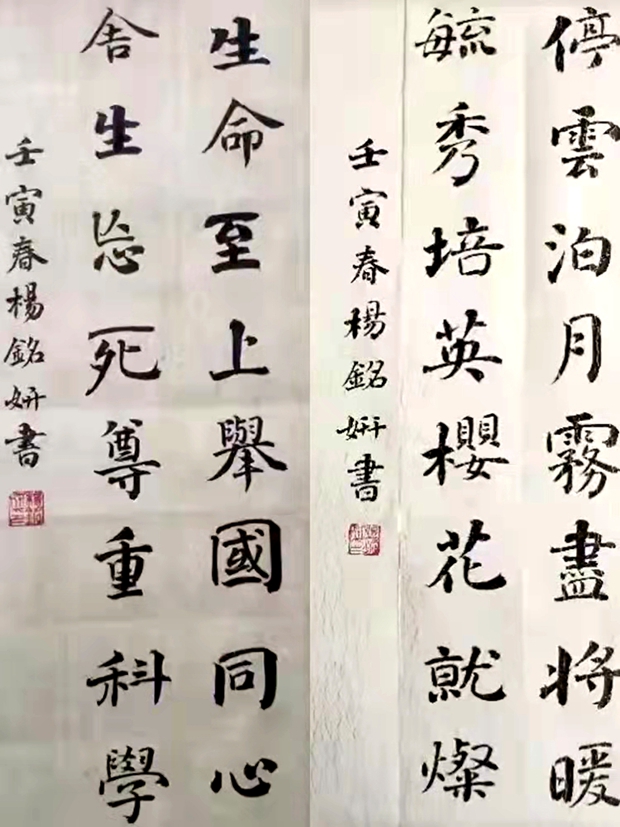 停雲泊月霧盡将暖
毓秀培英櫻花就燦
壬寅春楊銘妍書
生命至上舉國同心
舍生忘死尊重科學
壬寅春楊銘妍書